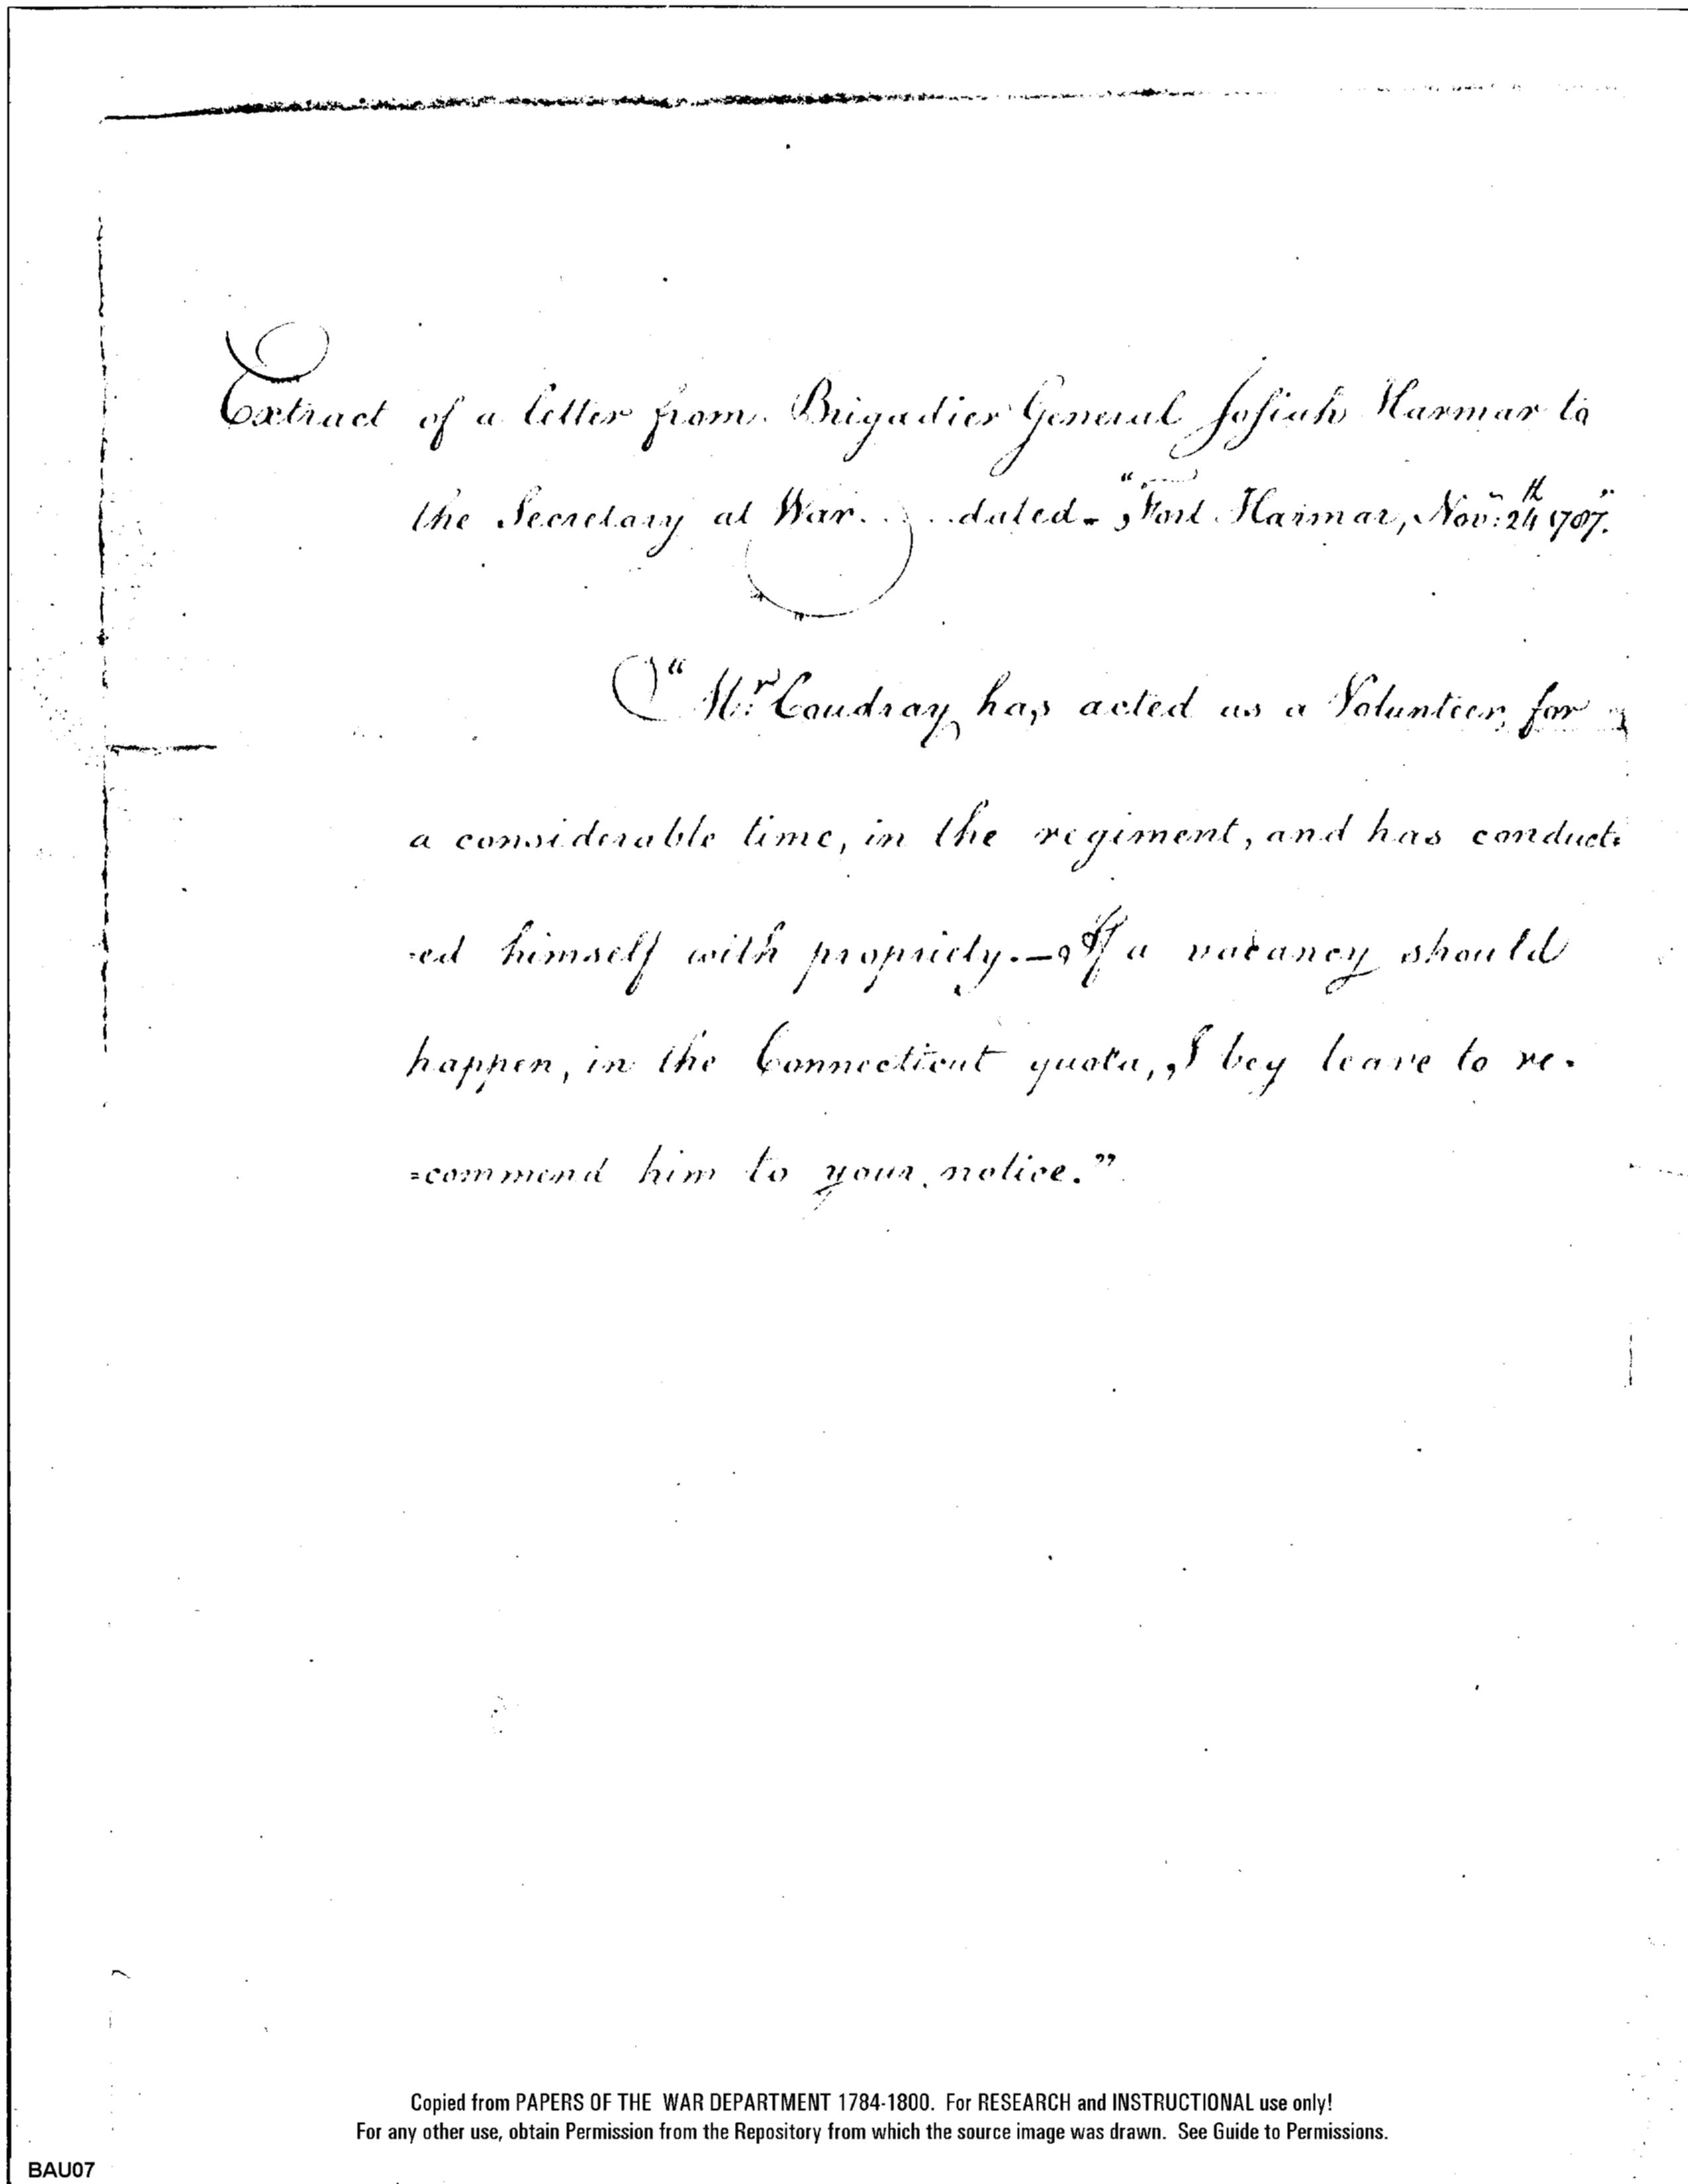 Extract of a letter from Brigadier General Josiah Harmar to
the Secretary at War. . . . dated - "Fort Harmar, Nov: 24th 1787."
"Mr. Coudray has acted as a Volunteer, for
a considerable time, in the regiment, and has conduct-
-ed himself with propriety. — If a vacancy should
happen, in the Connecticut quota, I beg leave to re-
=commend him to your notice."
Copied from PAPERS OF THE WAR DEPARTMENT 1784-1800. For RESEARCH and INSTRUCTIONAL use only!
For any other use, obtain Permission from the Repository from which the source image was drawn. See Guide to Permissions.
BAU07